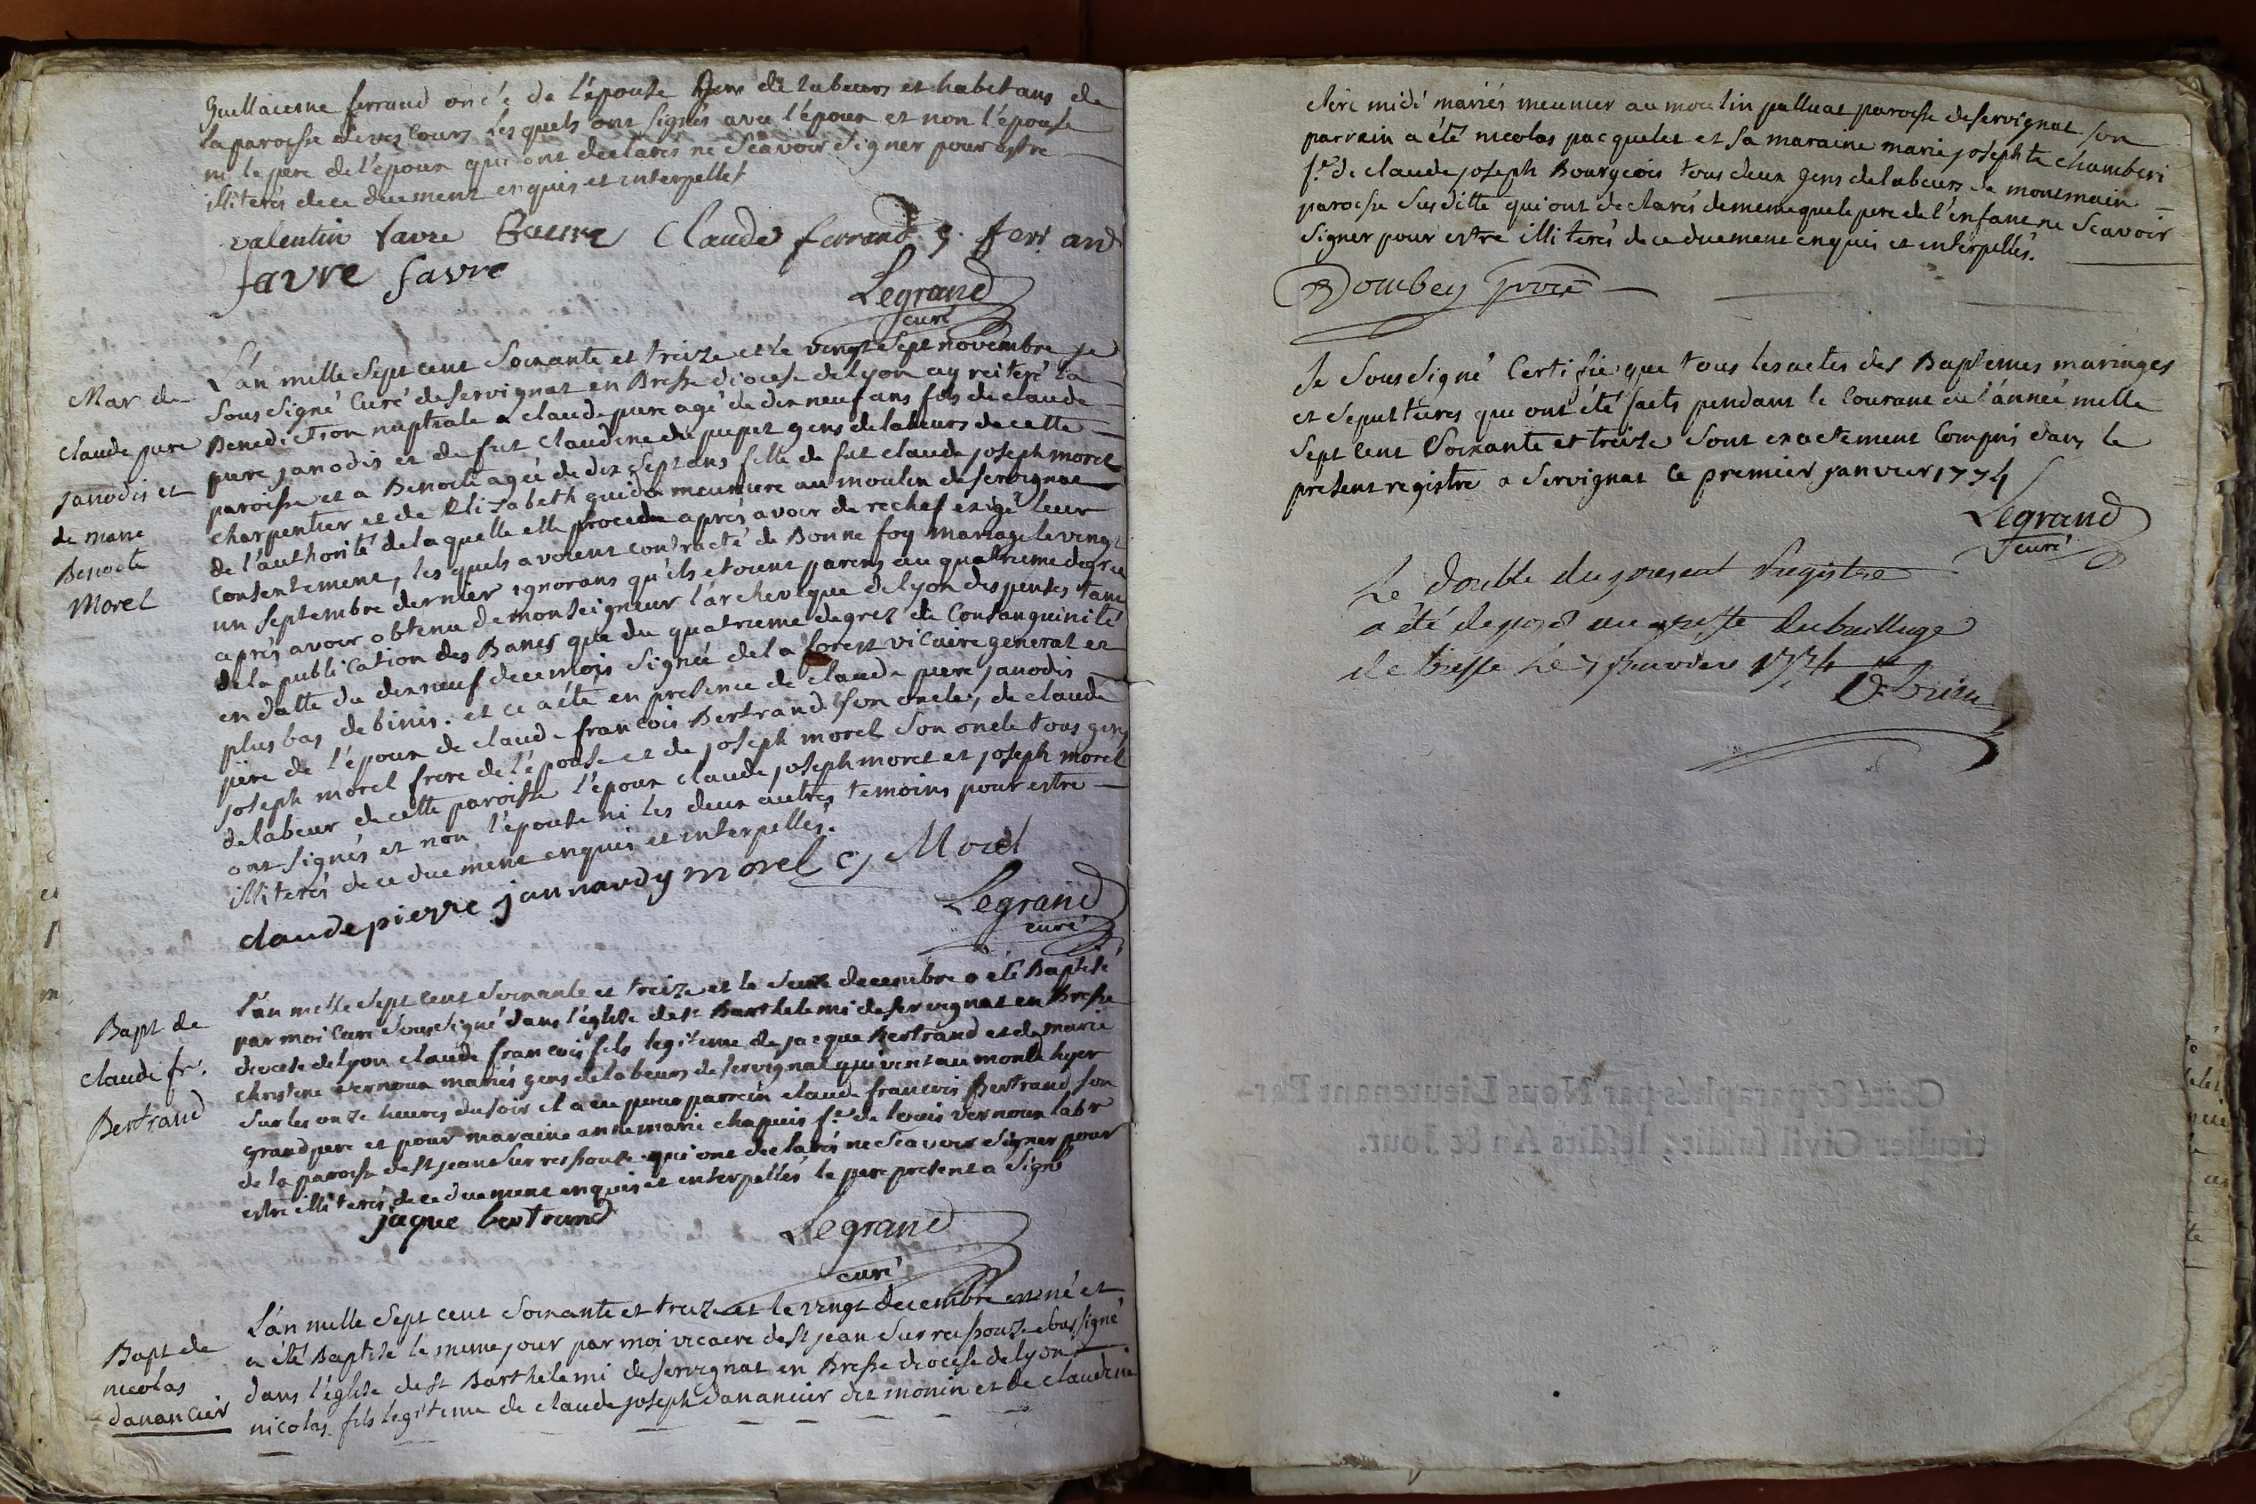 Guillaume ferrand oncle de l'épouse gens de labeurs et habitans de
la paroisse de vescours lesquels ont signés avec l'époux et non l'épouse
ni le pere de l'époux qui ont declarés ne sçavoir signer pour estre
illiterés de ce duement enquis et interpellés
valentin favre Claude ferrand g. ferrand
favre favre
Legrand
curé
L'an mille sept cent soixante et treize et le vingt sept novembre je
soussigné Curé de servignat en Bresse diocese de lyon ay reiteré la
Mar de
Benediction nuptiale a claude pierre agé de dix neuf ans fils de claude
claude pierre
pierre janodis et de fut claudine du pupet gens de labeurs de cette
janodis et
paroisse et a Benoite agée de dix sept ans fille de fut claude joseph morel
de marie
charpentier et de Elizabeth guidon meuniere au moulin de servignat
Benoite
de l'authorité de laquelle elle procede aprés avoir de rechef exigé leur
Morel
consentement, les quels avoient contracté de Bonne foy mariage le vingt
un septembre dernier ignorans qu'ils etoient parens au quatrieme degré
aprés avoir obtenu de monseigneur l'archeveque de lyon dispenses tant
de la publication des Bancs que du quatrieme degrez de Consanguinité
en datte du dix neuf de ce mois signée de la forest vicaire general et
plus bas de binis. et ce a été en presence de claude pierre janodis
père de l'époux de claude francois Bertrand son oncle, de claude
joseph morel frere de l'épouse et de joseph morel son oncle tous gens
de labeur de cette paroisse l'époux claude joseph morel et joseph morel
ont signés et non l'épouse ni les deux autres temoins pour estre
illiterés de ce duement enquis et interpellés.
claude pierre jannaudy morel cj Morel
Legrand
curé
l'an mille sept cent soixante et treize et le seize decembre a été Baptisé
par moi Curé soussigné dans l'église de st Barthelemi de servignat en Bresse
Bapt de
diocese de lyon claude francois fils legitime de jacque Bertrand et de marie
claude fr.
christine vernoux mariés gens de labeurs de servignat qui vint au monde hyer
Bertrand
sur les onze heures du soir il a eu pour parrein claude francois Bertrand son
grand pere et pour maraine anne marie chapuis f.e de louis vernoux labr
de la paroisse de st jean sur ressouse qui ont declarés ne sçavoir signer pour
estre illiterés de ce duement enquis et interpellés le pere present a signé
jaque bertrand
Legrand
curé
L'an mille sept cent soixante et treize et le vingt decembre est né et
a été Baptisé le meme jour par moi vicaire de st jean sur reissouze soussigné
Bapt de
dans l'église de st Barthelemi de servignat en Bresse diocese de lyon
nicolas
nicolas fils legitime de claude joseph danancier dit monin et de claudine
danancier
claire midé mariés meunier au moulin palluat paroisse de servignat son
parrain a été nicolas pacquelet et sa maraine marie josephte chamberi
f.e de claude joseph Bourgeois tous deux gens de labeurs de montmain
paroisse susditte qui ont declarés de meme que le pere de l'enfant ne scavoir
signer pour estre illiterés de ce duement enquis et interpellés.
Dombey
Je sous signé Certifie que tous les actes des Baptemes mariages
et sepultures que ont été faits pendant le Courant de l'année mille
sept cent soixante et treize sont exactement Compris dans le
present registre a servignat ce premier janvier 1774
Legrand
curé
Le double du present Registre
a été deposé au greffe du bailliage
de bresse le 7 janvier 1774
Cotté & paraphés par Nous Lieutenant Par-
ticulier Civil susdit; lesdits An & Jour.